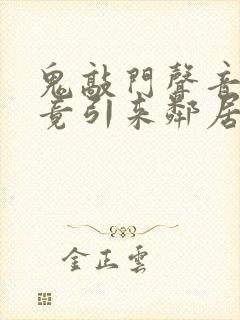 鬼敲門聲音
竟引来鄰居
金正雲